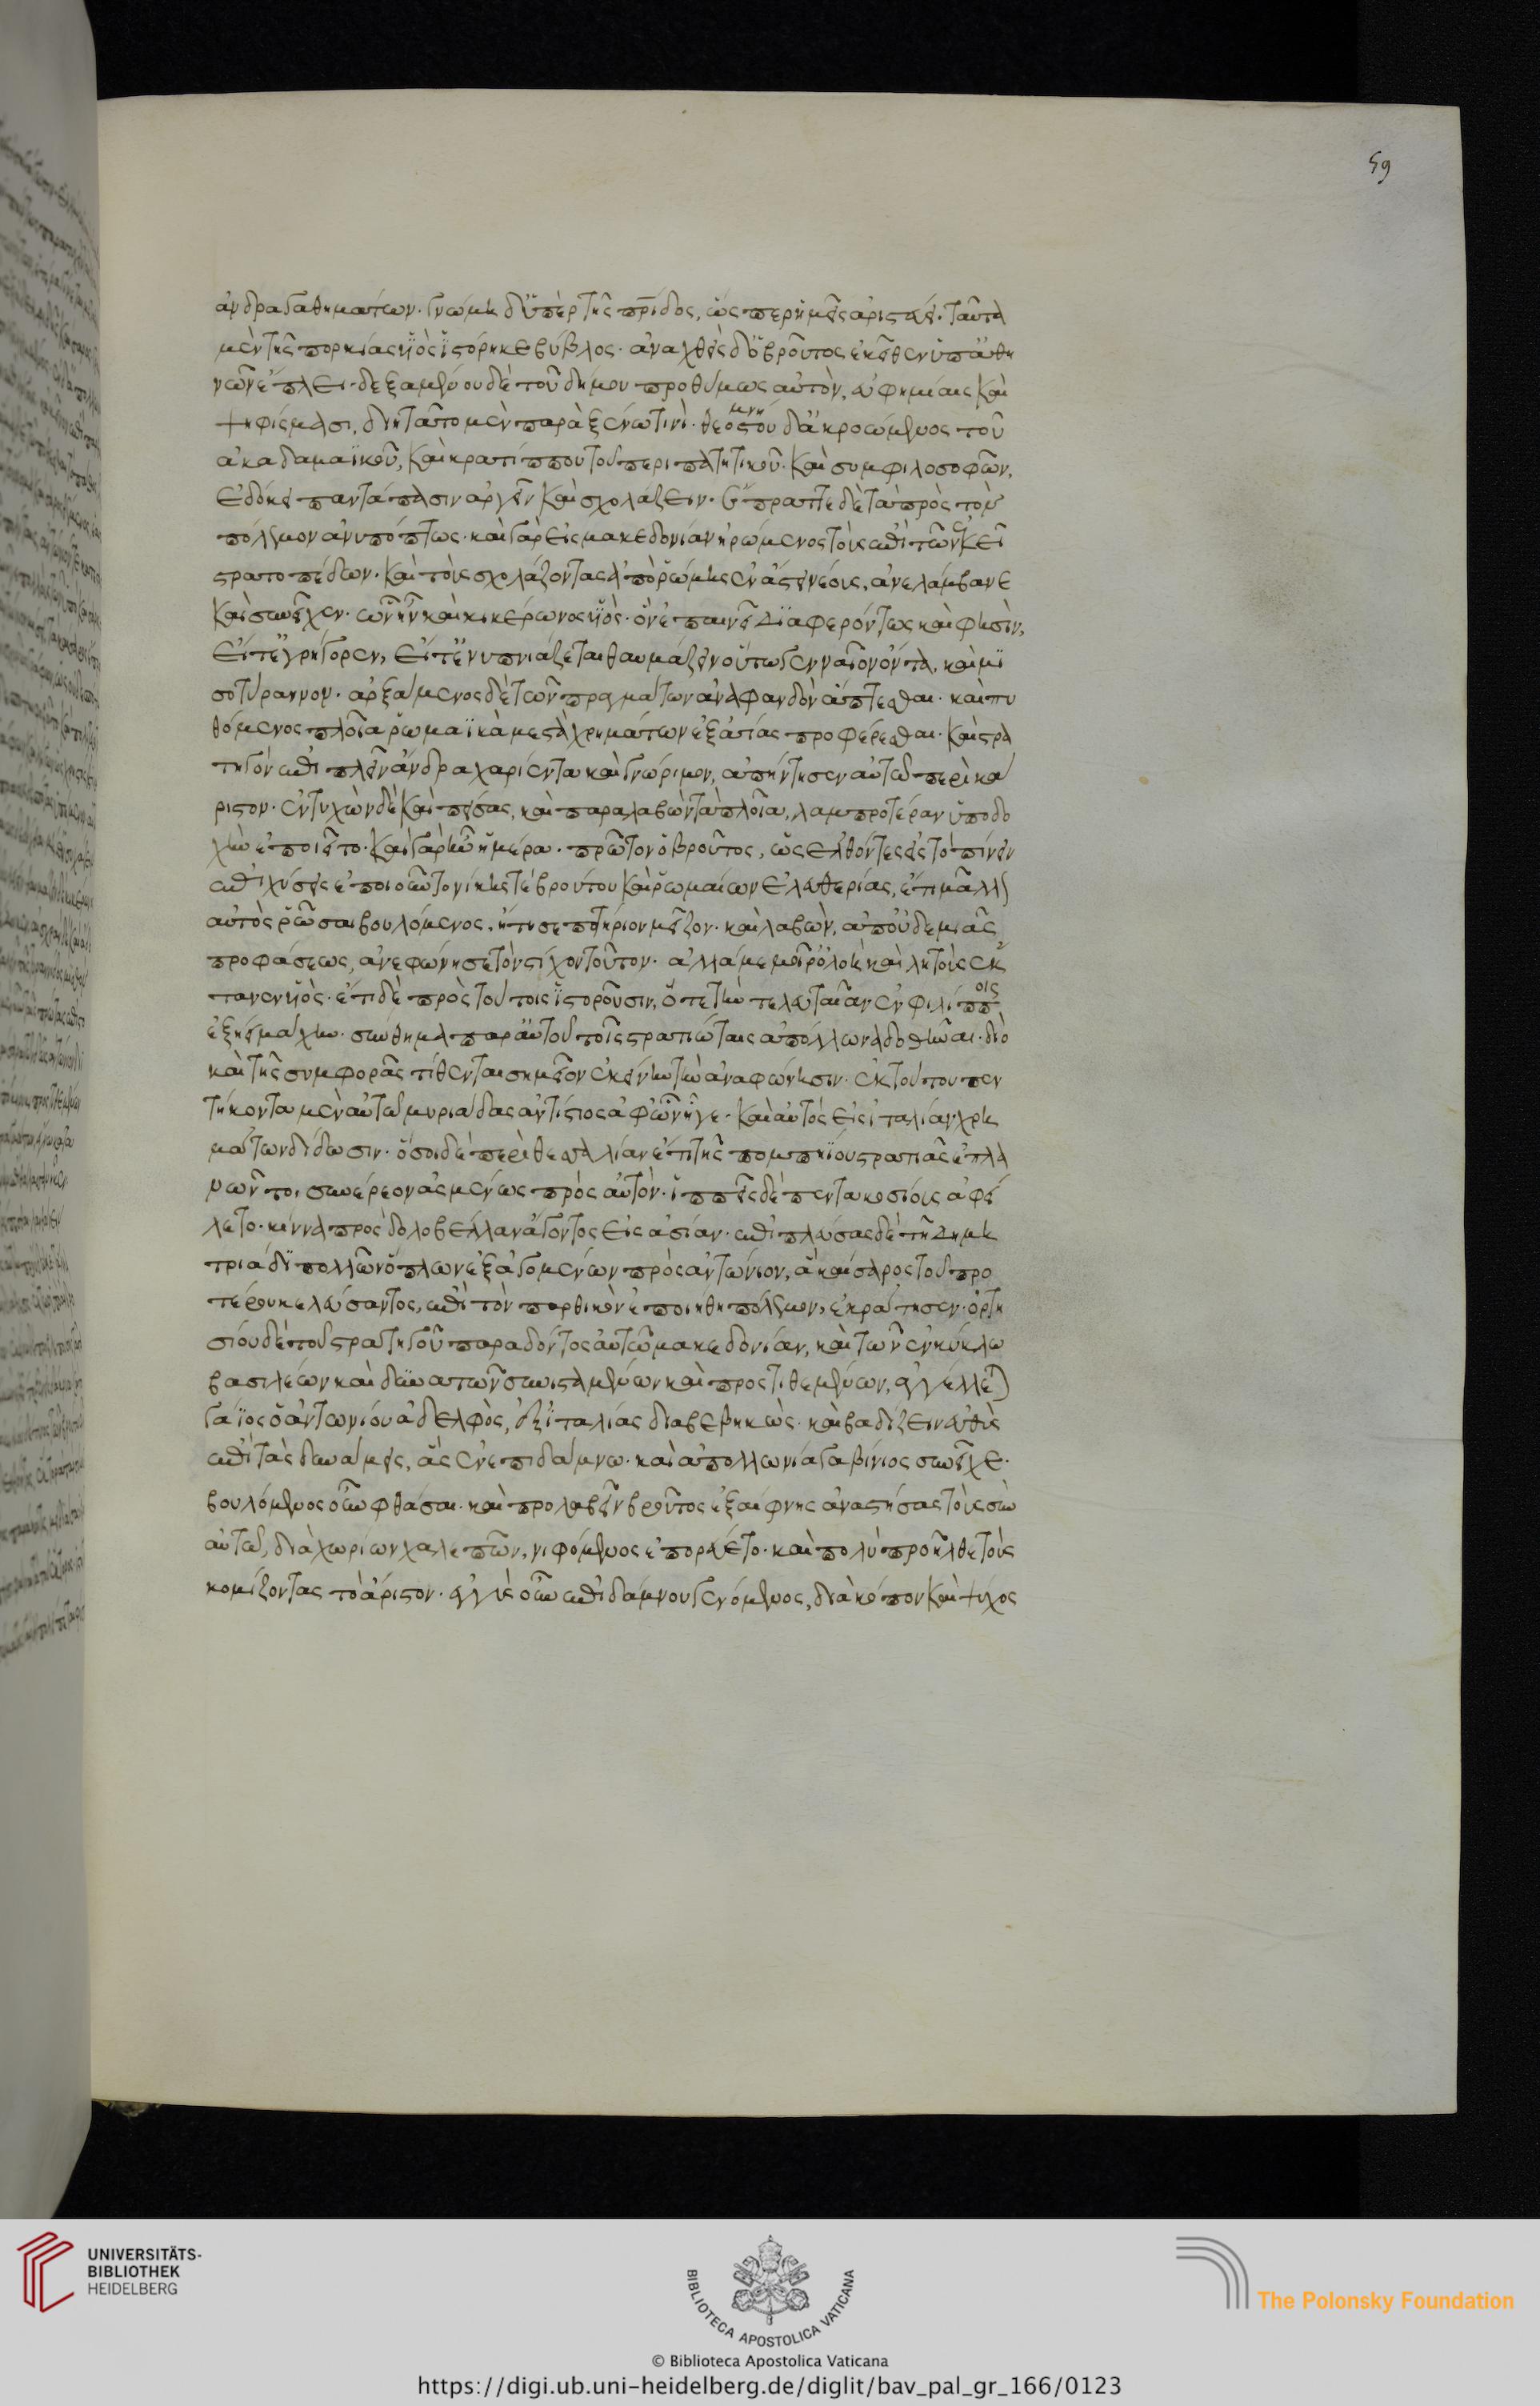 59
ἀνδραγαθημάτων· γνώμη δ' ὑπὲρ τῆς πρίδος, ὥσπερ ἡμεῖς ἀριστεύει. ταῦτα
μὲν τῆς πορκίας υἱὸς ἱστόρηκε βύβλος· ἀναχθεὶς δ' ὁ βροῦτος ἐκεῖθεν ὑπ' ἀθη
νῶν ἔπλει· δεξαμένου δὲ τοῦ δήμου προθύμως αὐτὸν, εὐφημίαις καὶ
ψηφίσμασι, διῃτᾶτο μὲν παρὰ ξένῳ τινί· θεομνήστου δ' ἀκροώμενος τοῦ
ἀκαδαμαϊκοῦ, καὶ κρατίππου τοῦ περιπατητικοῦ· καὶ συμφιλοσοφῶν,
ἐδόκει παντάπασιν ἀργεῖν καὶ σχολάζειν· ἔπραττε δὲ τὰ πρὸς τὸν
πόλεμον ἀνυπόπτως· καὶ γὰρ εἰς μακεδονίαν ἡρώμενος τοὺς ἐπὶ τῶν ἐκεῖ
στρατοπέδων· καὶ τοὺς σχολάζοντας ἀπὸ ῥώμης ἐν ἄστει νέους, ἀνελάμβανε
καὶ συνεῖχεν· ὧν ἦν καὶ κικέρωνος υἱὸς· ὃν ἐπαινεῖ διαφερόντως καὶ φησὶν,
εἴτ' ἐγρήγορεν, εἴτ' ἐνυπνιάζεται θαυμάζειν οὕτω γενναῖον ὄντα, καὶ μι
σοτύραννον· ἀρξάμενος δὲ τῶν πραγμάτων ἀναφανδὸν ἅπτεσθαι· καὶ πυ
θόμενος πλοῖα ῥωμαϊκὰ μεστὰ χρημάτων ἐξ ἀσίας προφέρεσθαι· καὶ στρα
τηγὸν ἐπιπλεῖν ἄνδρα χαρίεντα καὶ γνώριμον, ἀπήντησεν αὐτῷ περὶ κα
ριστον· ἐντυχὼν δὲ καὶ πείσας, καὶ παραλαβὼν τὰ πλοῖα, λαμπροτέραν ὑποδο
χὴν ἐποιεῖτο· καὶ γὰρ ἦν ἡμέρα· πρῶτον ὁ βροῦτος, ὡς ἐλθόντες εἰς τὸ πίνειν
ἐπιχύσεις ἐποιοῦντο νίκης τε βρούτου καὶ ῥωμαίων ἐλευθερίας, ἔτι μᾶλλον
αὐτὸς ῥῶσαι βουλόμενος, ᾔτησε ποτήριον μεῖζον· καὶ λαβὼν, ἀπ' οὐδεμιᾶς
προφάσεως, ἀνεφώνησε τὸν στίχον τοῦτον· ἀλλά με μοῖρ' ὀλοὴ καὶ λητοῦς ἔκ
τανεν υἱὸς· ἔτι δὲ πρὸς τούτοις ἱστοροῦσιν, ὅτε τὴν τελευταίαν ἐν φιλίπποις
ἐξῄει μάχην· σύνθημα παρ' αὐτοῦ τοῖς στρατιώταις ἀπόλλωνα δοθῆναι· διὸ
καὶ τῆς συμφορᾶς τίθενται σημεῖον ἐκείνην τὴν ἀναφώνησιν. ἐκ τούτου πεν
τήκοντα μὲν αὐτῷ μυριάδας ἀντίστιος ἀφ' ὧν ἦγε· καὶ αὐτὸς εἰς ἰταλίαν χρη
μάτων δίδωσιν· ὅσοι δὲ περὶ θεσσαλίαν ἔτι τῆς πομπηίου στρατιᾶς ἐπλα
νῶντο, συνέρεον ἀσμένως πρὸς αὐτόν· ἱππεῖς δὲ πεντακοσίους ἀφεί
λετο· κίννα πρὸς δολοβέλλαν ἄγοντος εἰς ἀσίαν· ἐπιπλεύσας δὲ τῇ δημη
τριάδι πολλῶν ὅπλων ἐξαγομένων πρὸς ἀντώνιον, ἃ καίσαρος τοῦ προ
τέρου κελεύσαντος, ἐπὶ τὸν παρθικὸν ἐποιήθη πόλεμον, ἐκράτησεν· ὁρτη
σίου δὲ τοῦ στρατηγοῦ παραδόντος αὐτῷ μακεδονίαν, καὶ τῶν ἐν κύκλῳ
βασιλέων καὶ δυνατῶν συνισταμένων καὶ προστιθεμένων, ἀγγέλλεται
γάϊος ὁ ἀντωνίου ἀδελφὸς, ἐξ ἰταλίας διαβεβηκὼς· καὶ βαδίζειν εὐθὺς
ἐπὶ τὰς δυνάμεις, ἃς ἐν ἐπιδάμνῳ· καὶ ἀπολλωνίᾳ γαβίνιος συνεῖχε·
βουλόμενος οὖν φθάσαι· καὶ προλαβεῖν βροῦτος ἐξαίφνης ἀναστήσας τοὺς σὺν
αὐτῷ, διὰ χωρίων χαλεπῶν, νιφόμενος ἐπορεύετο· καὶ πολὺ προῆλθε τοὺς
κομίζοντας τὸ ἄριστον· ἐγγὺς οὖν ἐπιδάμνου γενόμενος, διὰ κόπον καὶ ψῦχος
UNIVERSITÄTS-
BIBLIOTHEK
HEIDELBERG
BIBLIOTECA APOSTOLICA VATICANA
The Polonsky Foundation
© Biblioteca Apostolica Vaticana
https://digi.ub.uni-heidelberg.de/diglit/bav_pal_gr_166/0123